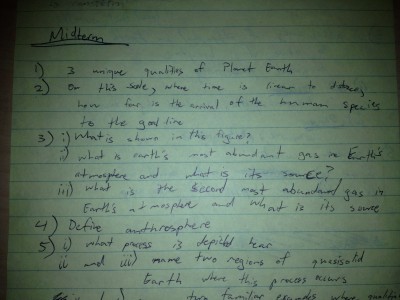 Midterm
1) 3 unique qualities of Planet Earth
2) On this scale, where time is linear to distance,
how far is the arrival of the human species
to the goal line
3) i) What is shown in this figure?
ii) what is earth's most abundant gas in Earth's
atmosphere and what is its source?
iii) what is the second most abundant gas in
Earth's atmosphere and what is its source
4) Define anthrosphere
5) i) what process is depicted hear
ii and iii) name two regions of quasisolid
Earth where this process occurs
two familiar examples where